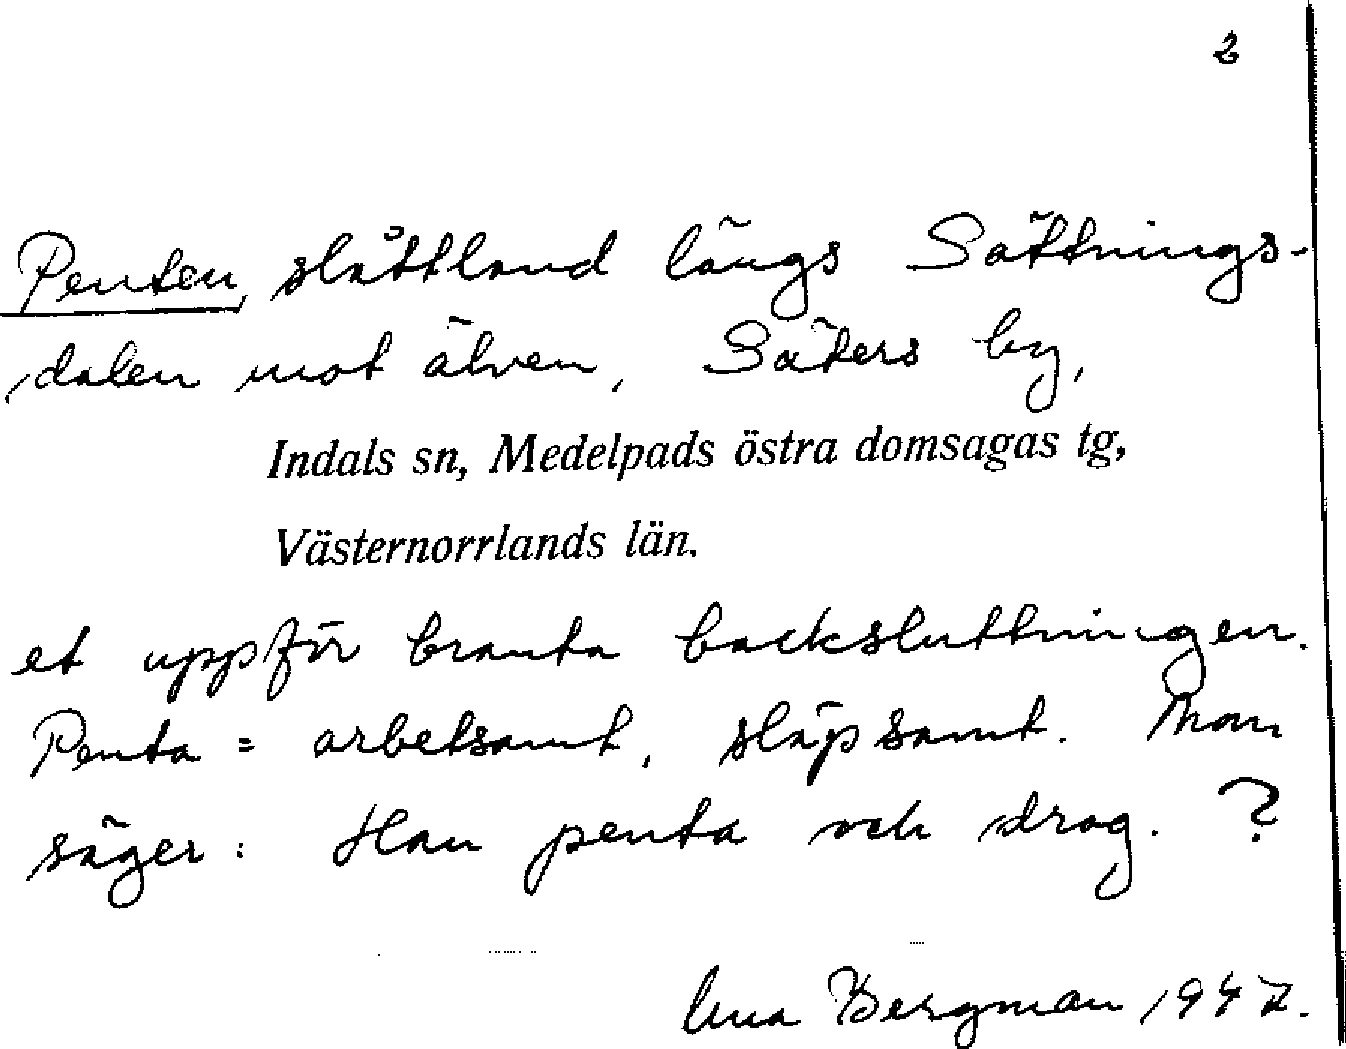 2
Penten, slåttland längs Sättnings-
dalen mot älven, Säters by,
Indals sn, Medelpads östra domsagas tg,
Västernorrlands län.
et uppför branta backsluttningen.
Penta = arbetsamt, släpsamt. Man
säger: Han penta och drog. ?
Bergman 1947.